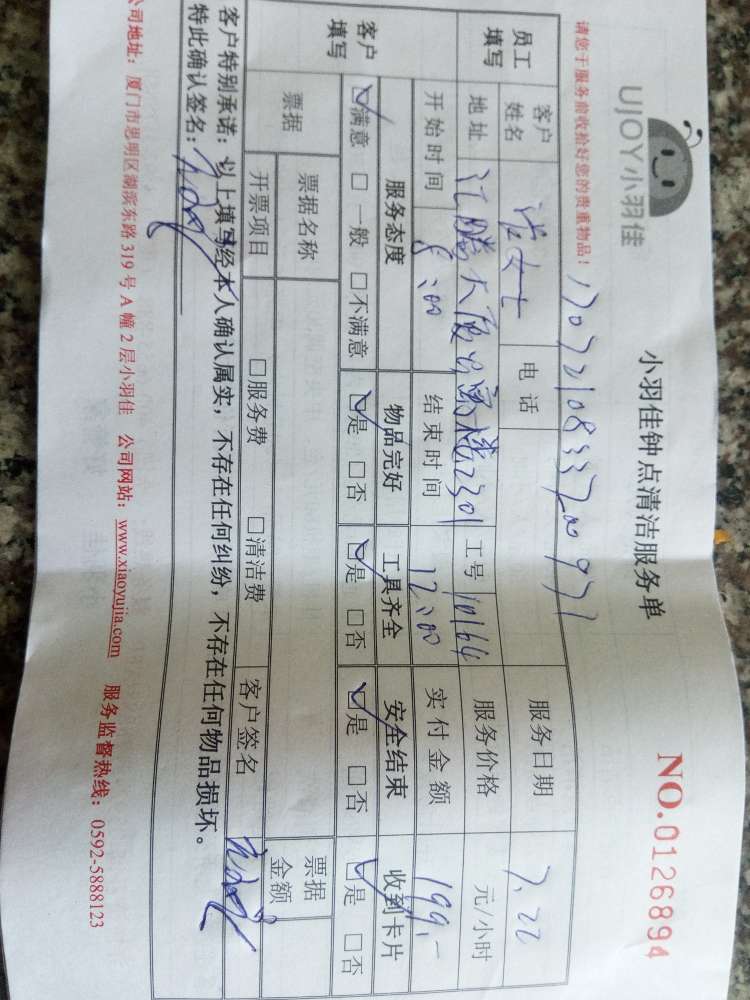 UJOY小羽佳
小羽佳钟点清洁服务单
NO.0126894
请您于服务前收拾好您的贵重物品!
员工填写 客户姓名 女士 电话 服务日期 7.22
地址 汇腾大厦 2301 工号 10164 服务价格 元/小时
客户填写 开始时间 8:00 结束时间 12:00 实付金额 199.-
服务态度 物品完好 工具齐全 安全结束 收到卡片
☑满意 □一般 □不满意 ☑是 □否 ☑是 □否 ☑是 □否 ☑是 □否
票据 票据名称 票据金额
开票项目 □服务费 □清洁费 客户签名
客户特别承诺:以上填写经本人确认属实,不存在任何纠纷,不存在任何物品损坏。
特此确认签名:
公司地址:厦门市思明区湖滨东路319号A幢2层小羽佳 公司网站:www.xiaoyujia.com 服务监督热线:0592-5888123